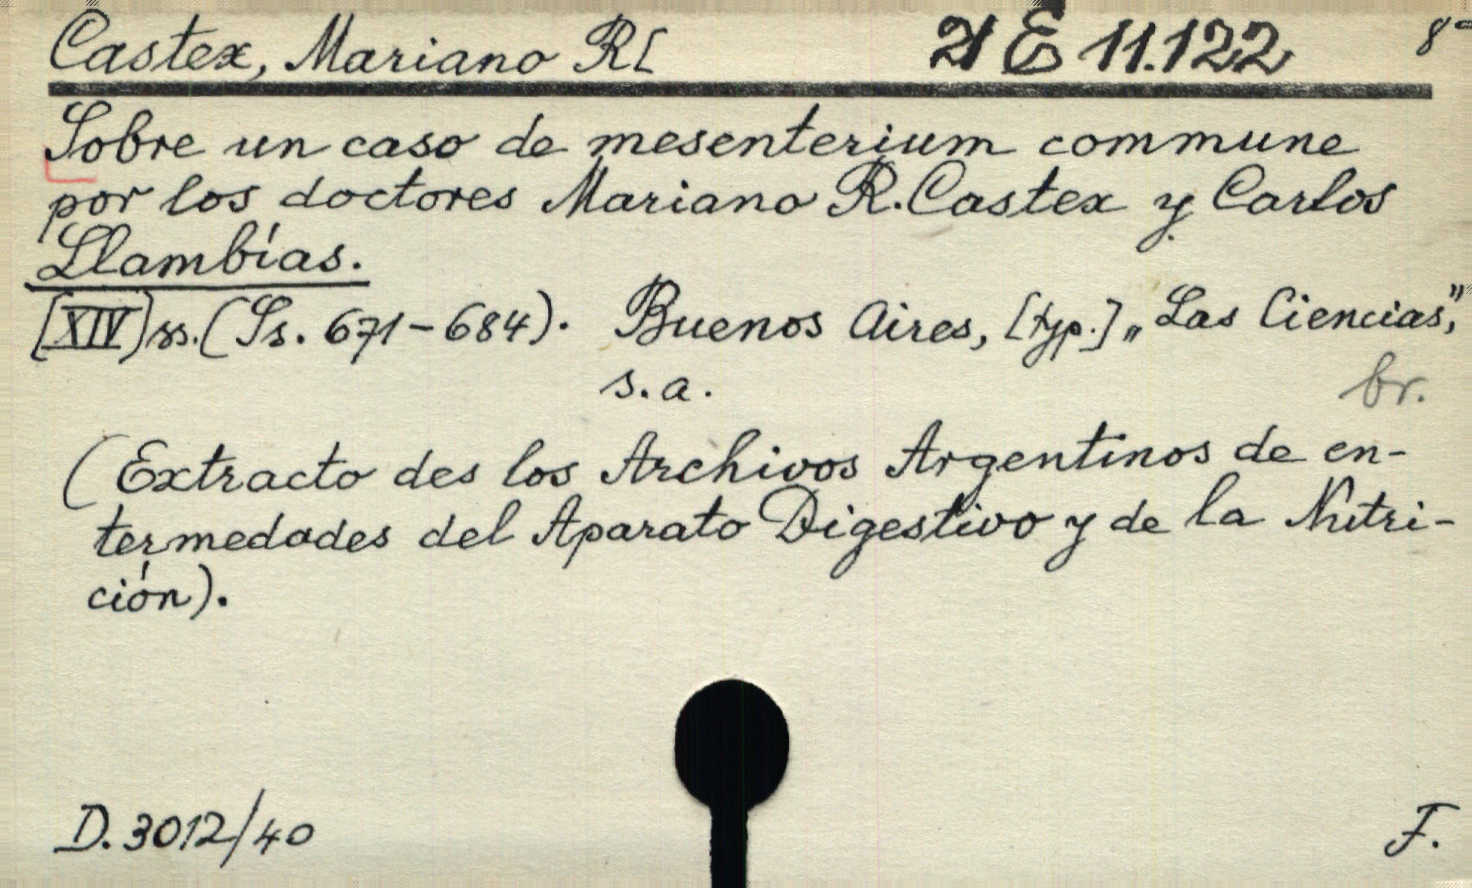 Castex, Mariano R[ 21 E 11.122 8º
Sobre un caso de mesenterium commune
por los doctores Mariano R. Castex y Carlos
Llambías.
[XIV] ss. (Ss. 671-684). Buenos Aires, [typ.] „Las Ciencias”,
s. a. br.
(Extracto des los Archivos Argentinos de en-
termedades del Aparato Digestivo y de la Nutri-
ción).
D. 3012/40 F.